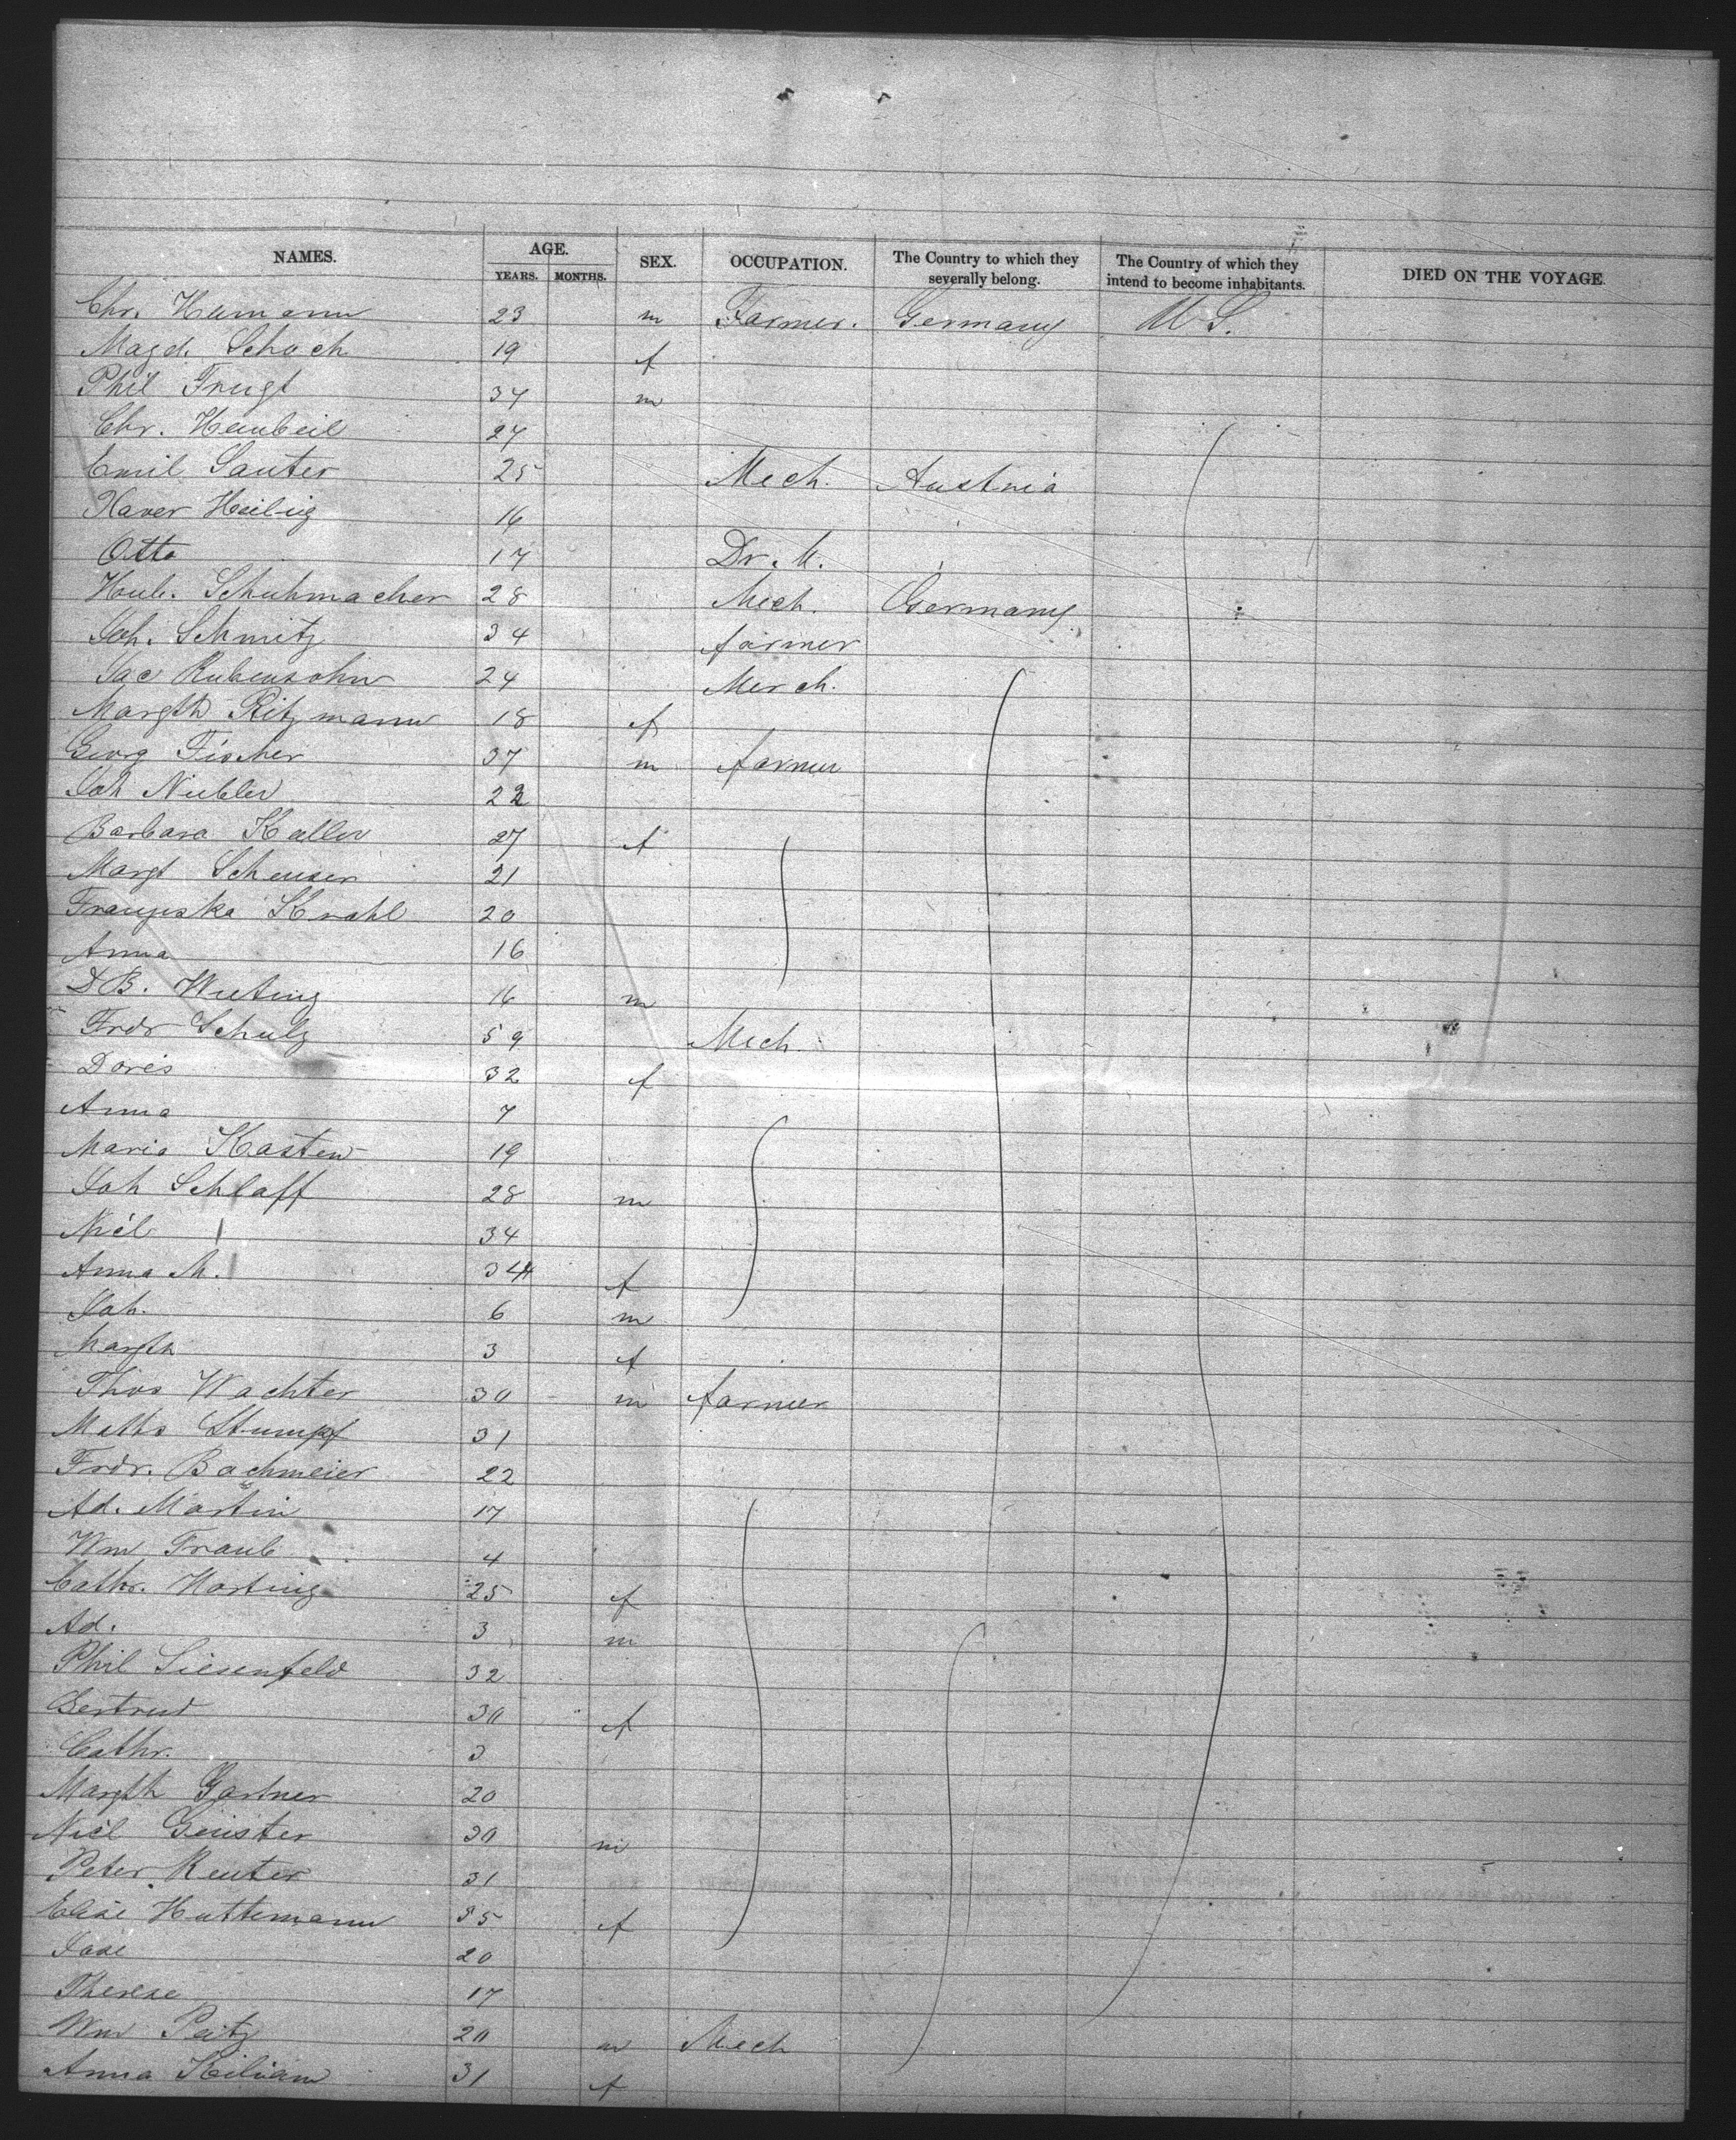 NAMES. AGE. YEARS. MONTHS. SEX. OCCUPATION. The Country to which they severally belong. The Country of which they intend to become inhabitants. DIED ON THE VOYAGE.
Chr. Hamann 23 m Farmer. Germany U S.
Magd. Schoch 19 f
Phil 34 m
Chr. Heinbeil 27
Emil Sauter 25 Mech. Austria
Xaver Heilig 16
Otto 17 Dr. U.
Hub. Schuhmacher 28 Mech. Germany
Joh. Schmitz 34 farmer
Jac Rubensohn 24 Merch.
Margth Ritzmann 18 f
Georg Fischer 37 m farmer
Joh Niebler 22
Barbara Kaller 27 f
Margt Scheuser 21
Franziska Krahl 20
Anna 16
D B. Wieting 16 m
Fredr Schulz 59 Mech.
Doris 32 f
Anna 7
Maria Kasten 19
Joh Schlaff 28 m
Nicl 34
Anna M. 34 f
Joh. 6 m
Margth 3 f
Thos Wachter 30 m farmer
Maths Stumpf 31
Fredr. Bachmeier 22
Ad. Martin 17
Wm Traub 4
Cathr. Harting 25 f
Ad. 3 m
Phil Liesenfeld 32
Gertrud 30 f
Cathr. 3
Margth Gartner 20
Nicl Geister 30 m
Peter Reuter 31
Elise Huttemann 35 f
Jose 20
Therese 17
Wm Peitz 20 m Mech
Anna Kilian 31 f